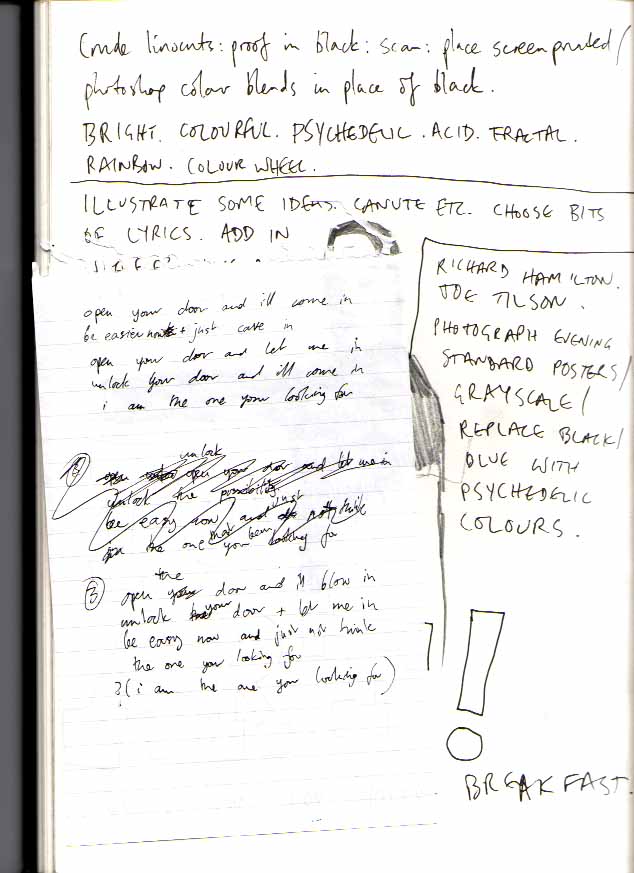 Crude linocuts: proof in black: scan: place screenprinted/
photoshop colour blends in place of black.
BRIGHT. COLOURFUL. PSYCHEDELIC. ACID. FRACTAL.
RAINBOW. COLOUR WHEEL.
ILLUSTRATE SOME IDEAS. CANUTE ETC. CHOOSE BITS
OF LYRICS. ADD IN
open your door and ill come in
be easier now + just cave in
open your door and let me in
unlock your door and ill come in
i am the one your looking for
unlock
open your door and let me in
unlock the
be easy now and just not think
the one that you been looking for
3
the
open door and ill blow in
unlock your door + let me in
be easy now and just not think
the one you looking for
?(i am the one your looking for)
RICHARD HAMILTON.
JOE TILSON.
PHOTOGRAPH EVENING
STANDARD POSTERS/
GRAYSCALE/
REPLACE BLACK/
BLUE WITH
PSYCHEDELIC
COLOURS.
!
BREAKFAST